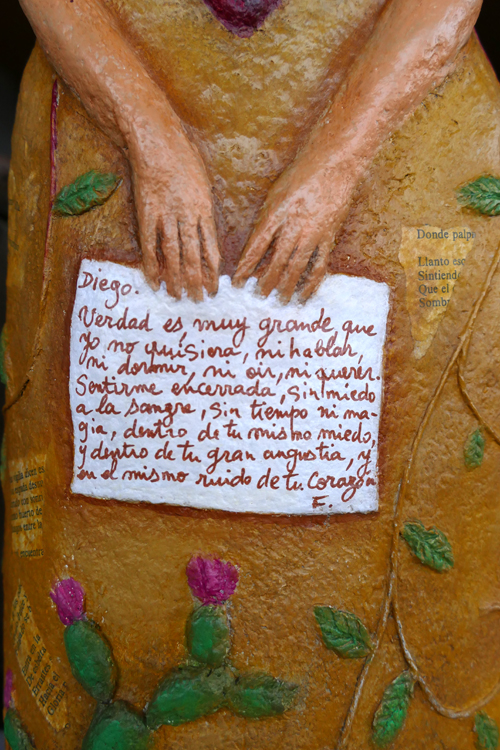 Diego.
Verdad es, muy grande, que
Yo no quisiera, ni hablar,
ni dormir, ni oir, ni querer.
Sentirme encerrada, Sin miedo
a la sangre, Sin tiempo ni ma-
gia, dentro de tu mismo miedo,
y dentro de tu gran angustia, y
en el mismo ruido de tu Corazón
F.
Donde palpa
Llanto
Sintiend
Que el
Sombr